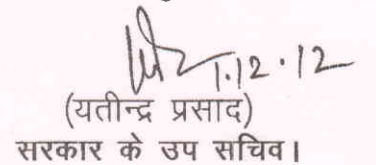 1.12.12
(यतीन्द्र प्रसाद)
सरकार के उप सचिव।